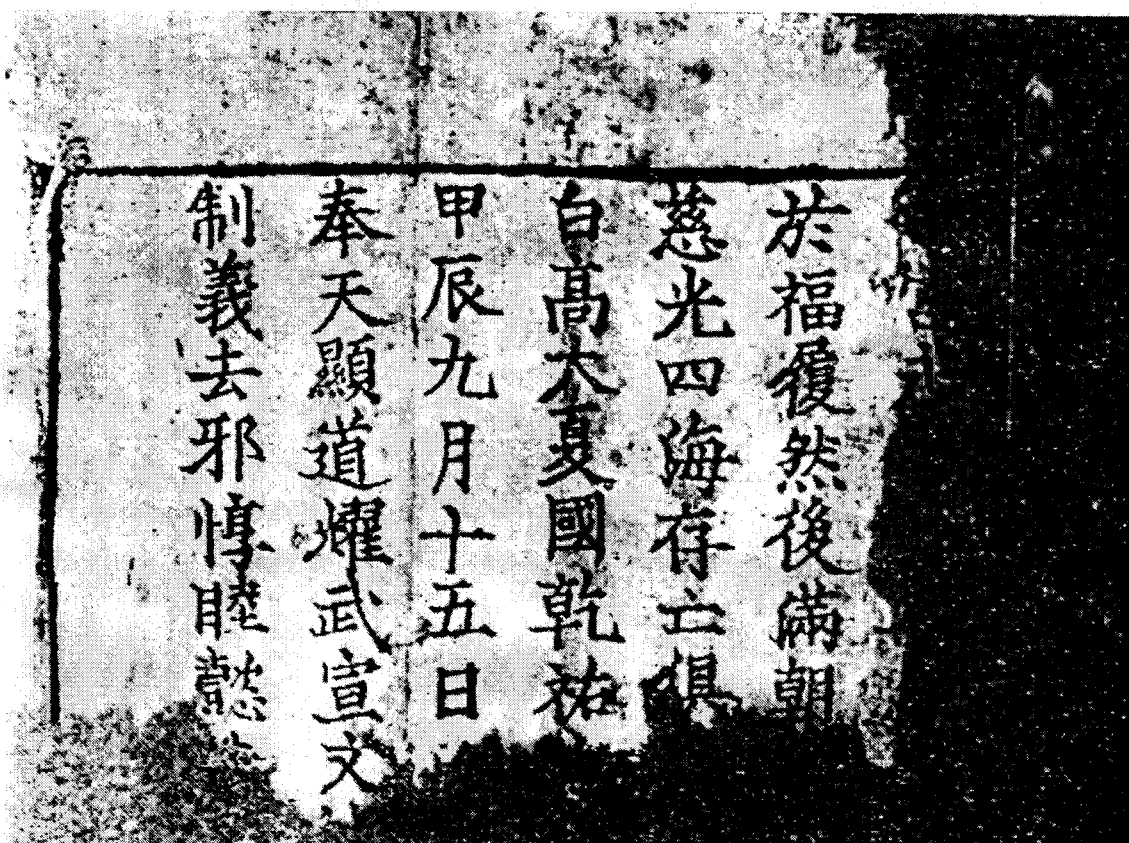 於福履然後滿朝
慈光四海存亡俱
白高大夏國乾祐
甲辰九月十五日
奉天顯道耀武宣文
制義去邪惇睦懿